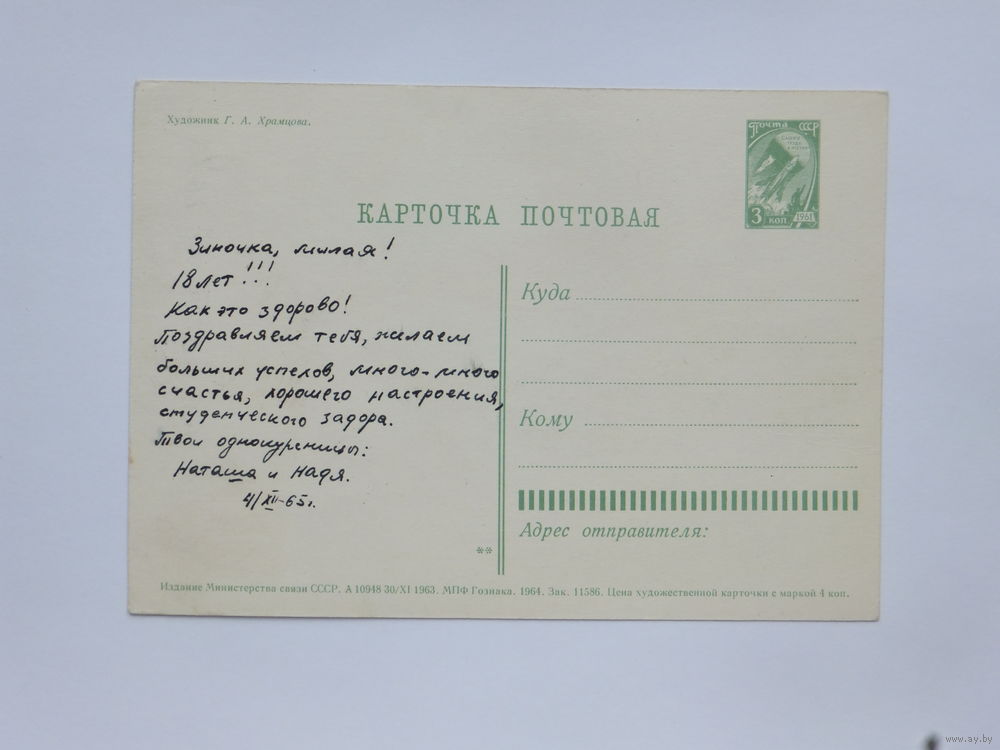 Художник Г. А. Храмцова.
почта СССР
3 коп. 1961
КАРТОЧКА ПОЧТОВАЯ
Зиночка, милая!
18 лет!!!
Как это здорово!
Поздравляем тебя, желаем
больших успехов, много-много
счастья, хорошего настроения,
студенческого задора.
Твои однокурсницы:
Наташа и Надя.
4/XII-65г.
Куда
Кому
Адрес отправителя:
**
Издание Министерства связи СССР. А 10948 30/XI 1963. МПФ Гознака. 1964. Зак. 11586. Цена художественной карточки с маркой 4 коп.
www.ay.by